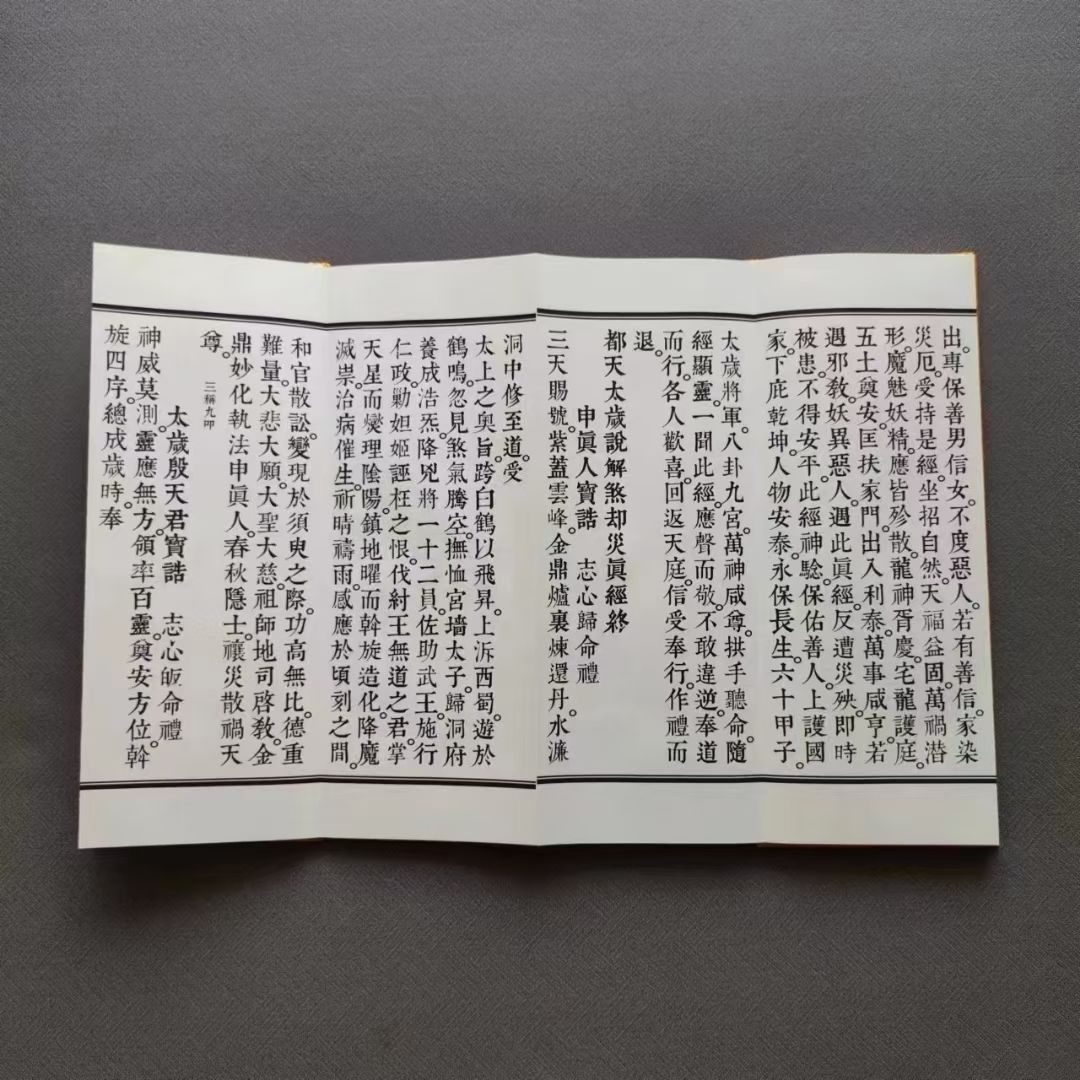 出。專保善男信女。不度惡人。若有善信家染
災厄。受持是經。坐招自然。天福益固。萬禍潛
形。魔魅妖精。應皆殄散。龍神胥慶。宅龍護庭。
五土奠安。匡扶家門。出入利泰。萬事咸亨。若
遇邪教。妖異惡人。遇此真經。反遭災殃。即時
被患。不得安平。此經神騐。保佑善人。上護國
家。下庇乾坤。人物安泰。永保長生。六十甲子。
太歲將軍。八卦九宮。萬神咸尊。拱手聽命。隨
經顯靈。一聞此經。應聲而敬。不敢違逆。奉道
而行。各人歡喜。回返天庭。信受奉行。作禮而
退。
都天太歲說解煞却災眞經終
申眞人寶誥　志心歸命禮
三天賜號。紫蓋雲峰。金鼎爐裏煉還丹。水濂
洞中修至道。受
太上之奥旨。跨白鶴以飛昇。上泝西蜀。遊於
鶴鳴。忽見煞氣騰空。撫恤宮墻太子。歸洞府
養成浩炁。降兇將一十二員。佐助武王。施行
仁政。勦妲姬誣枉之恨。伐紂王無道之君。掌
天星而燮理陰陽。鎮地曜而斡旋造化。降魔
滅祟。治病催生。祈晴禱雨。感應於頃刻之間。
和官散訟。變現於須臾之際。功高無比。德重
難量。大悲大願。大聖大慈。祖師地司啓教。金
鼎妙化執法申眞人。春秋隱士。禳災散禍天
尊。　三稱九叩
太歲殷天君寶誥　志心皈命禮
神威莫測。靈應無方。領率百靈。奠安方位。斡
旋四序。總成歲時。奉